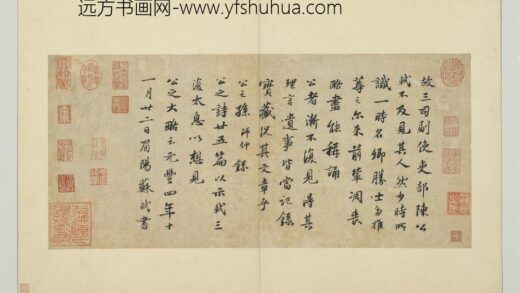 远方书画网-www.yfshuhua.com
故三司副使吏部陈公
轼不及见其人然少时所
識一時名卿勝士多推
尊之尔来前輩凋喪
略盡能稱誦
公者漸不復見得其
理言遺事皆當記錄
寶藏況其文章乎
公之孫師仲錄
公之詩廿五篇以示軾三
復太息以想見
公之大略云元豐四年十
一月廿二日眉陽蘇軾書